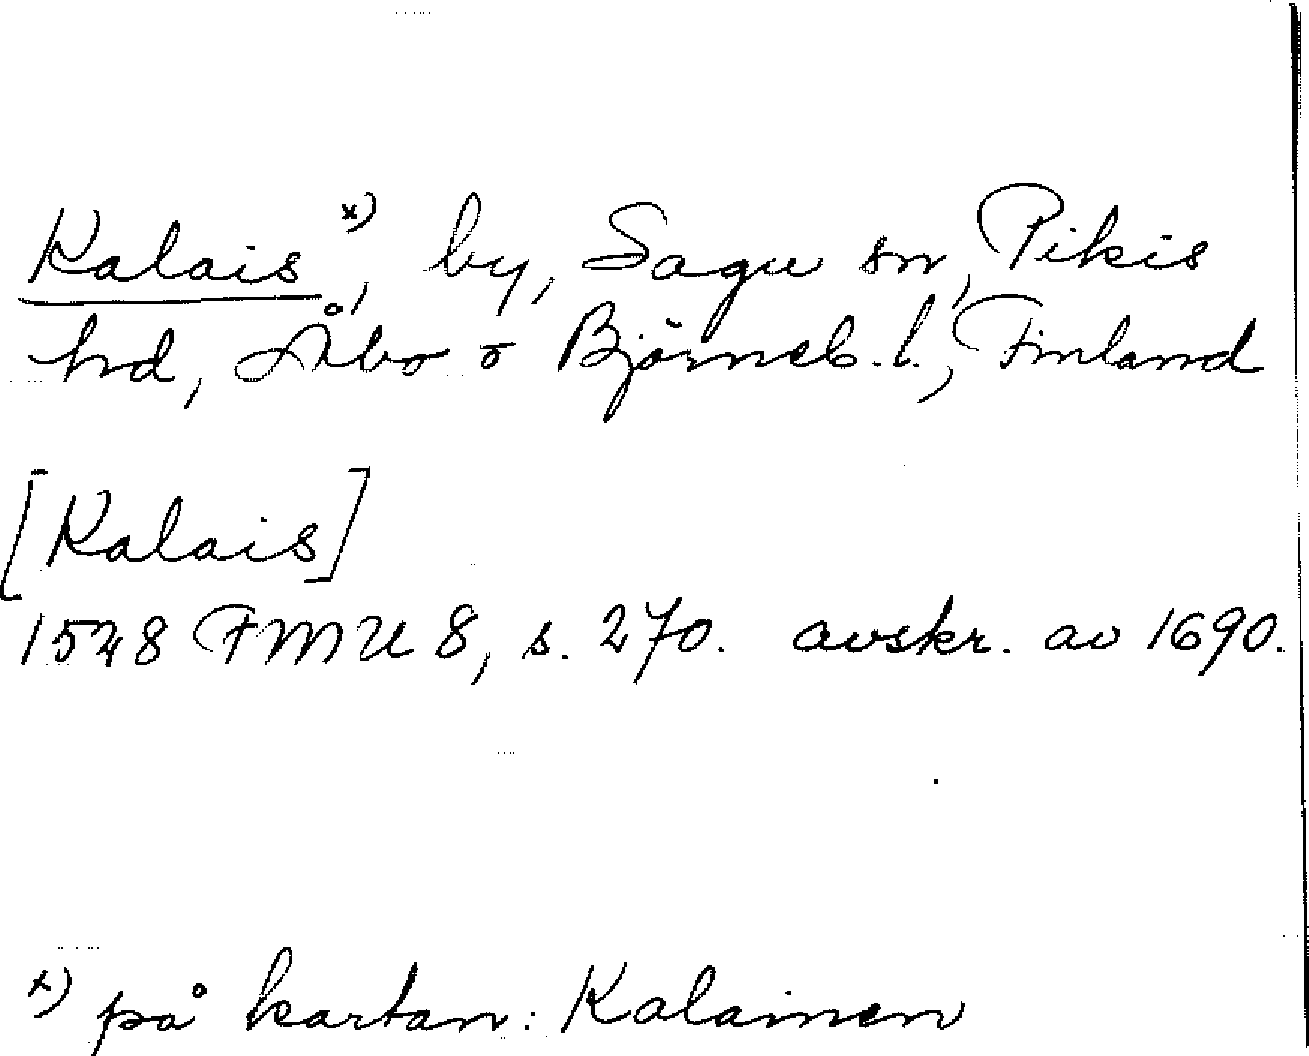 Kalais x), by, Sagu sn, Pikis
hd, Åbo o Björneb. l., Finland
[Kalais]
1528 FMU 8, s. 270. avskr. av 1690.
x) på kartan: Kalainen